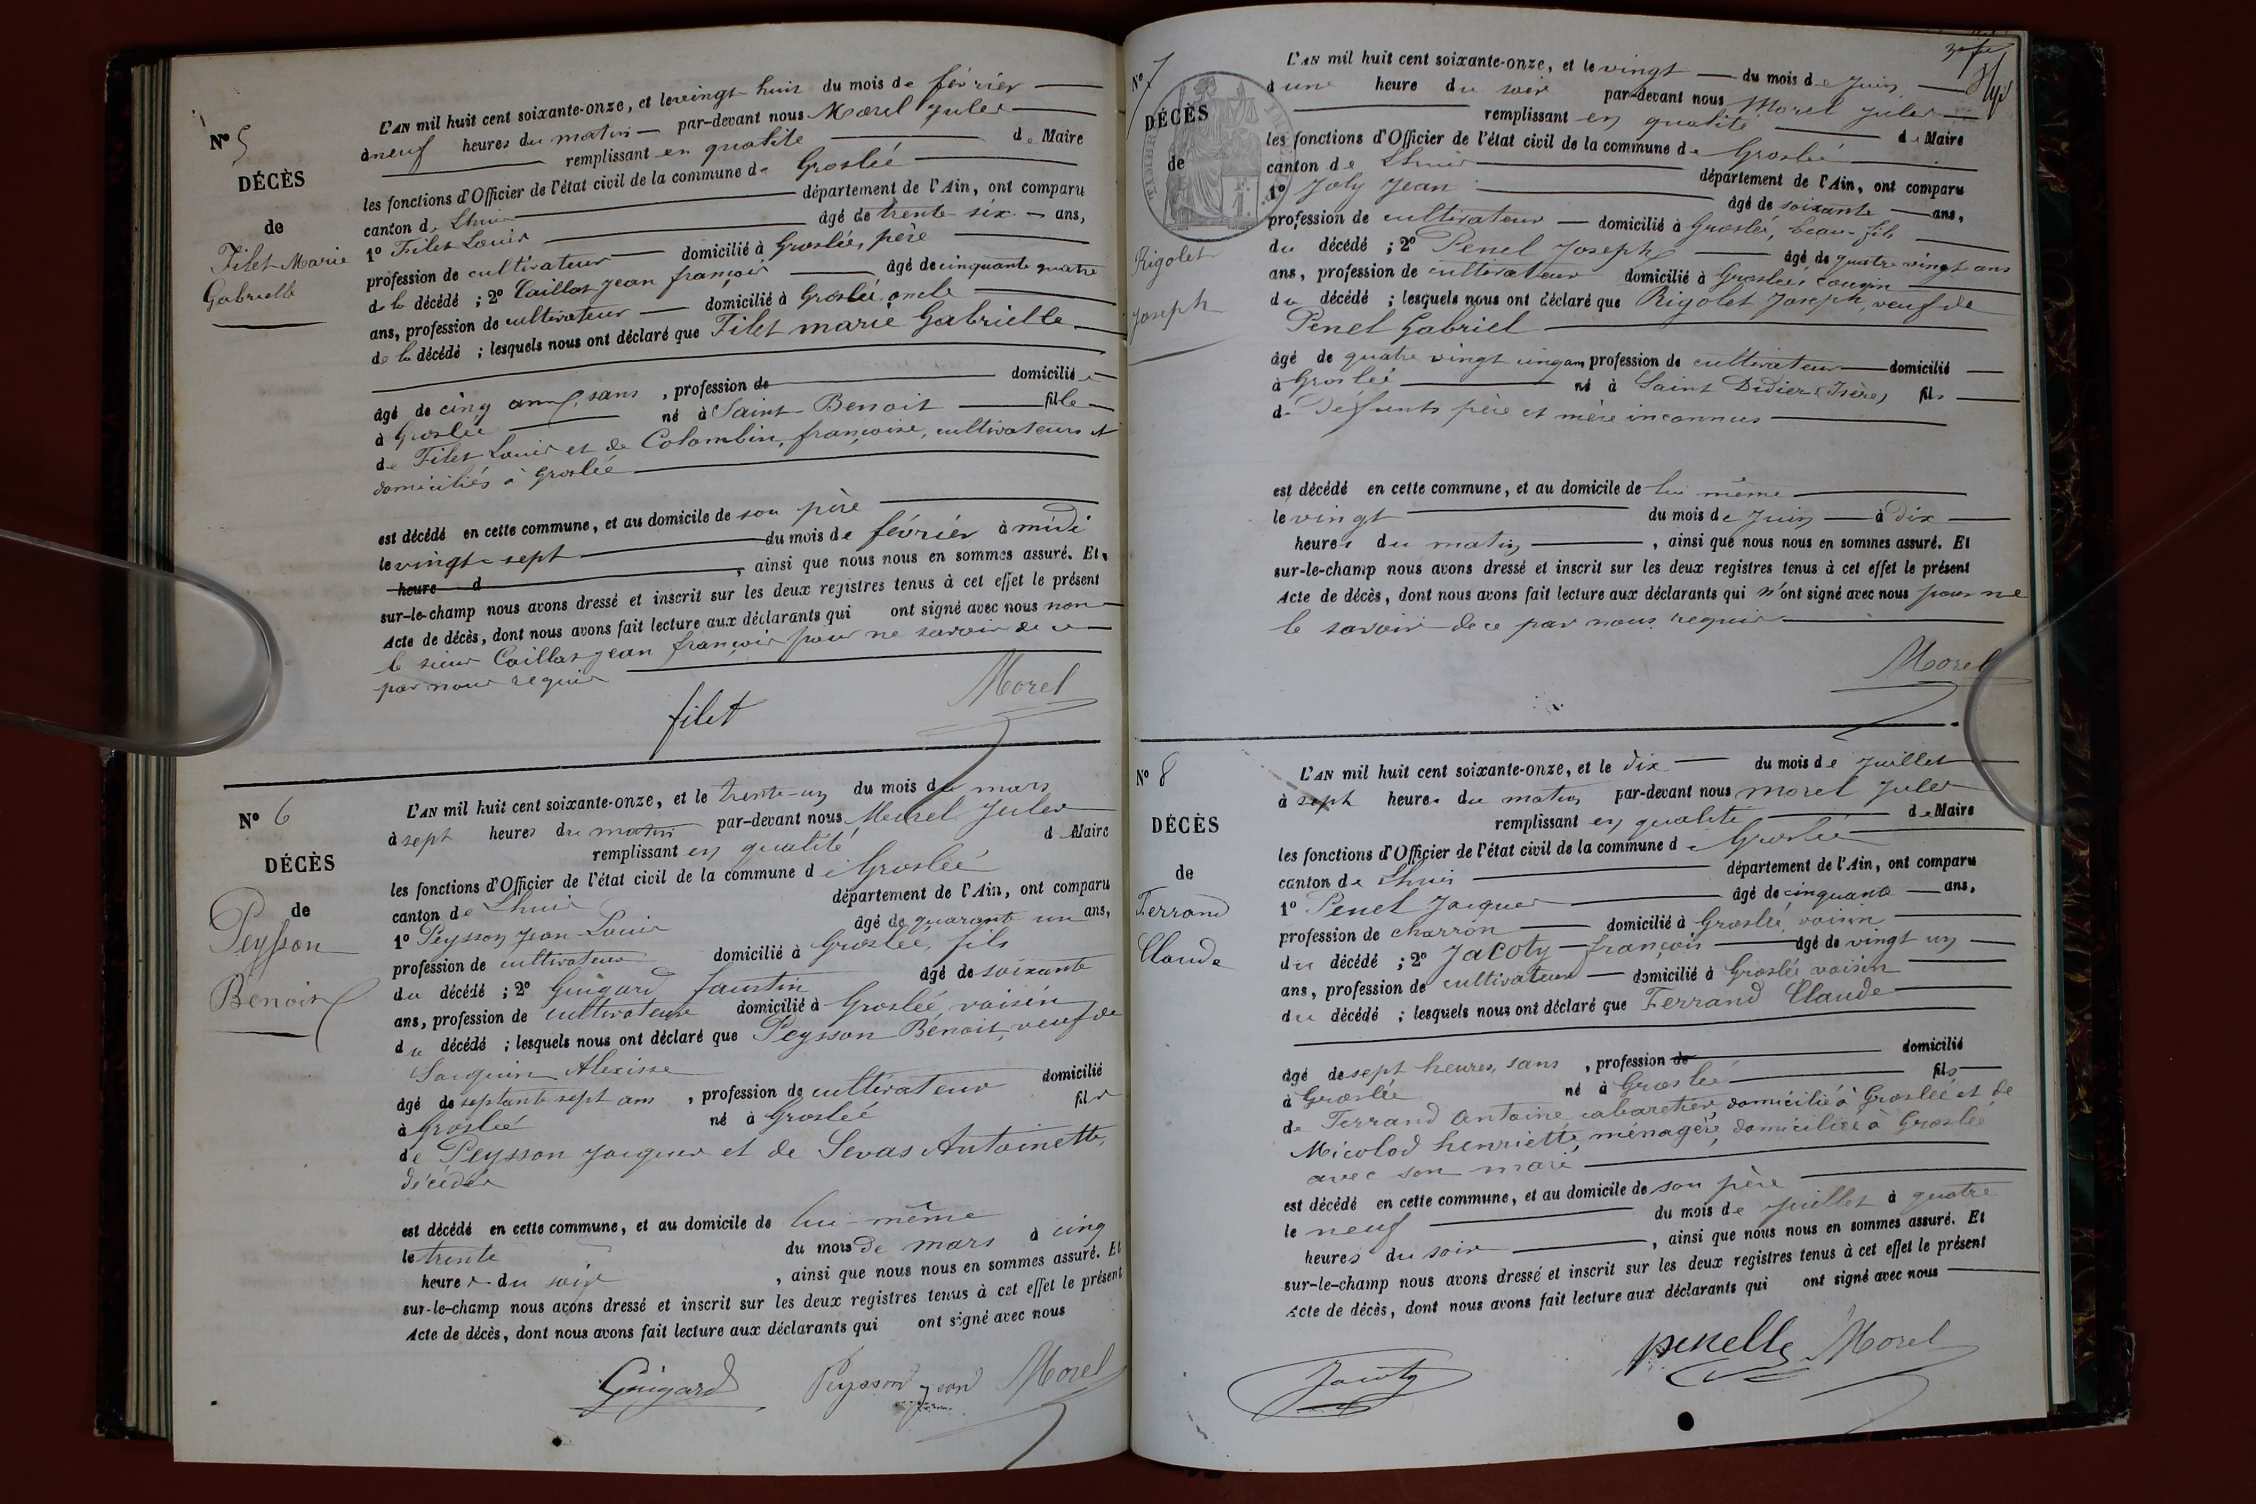 N° 5
DÉCÈS
de
Filet Marie
Gabrielle
L'AN mil huit cent soixante-onze, et le vingt huit du mois de février
à neuf heures du matin par-devant nous Morel Jules
remplissant en qualité de Maire
les fonctions d'Officier de l'état civil de la commune de Groslée
canton de Lhuis département de l'Ain, ont comparu
1° Filet Louis âgé de trente six ans,
profession de cultivateur domicilié à Groslée, père
de la décédé ; 2° Caillat jean françois âgé de cinquante quatre
ans, profession de cultivateur domicilié à Groslée, oncle
de la décédé ; lesquels nous ont déclaré que Filet marie Gabrielle
âgé de cinq ans, sans , profession de domicilié
à Groslée né à Saint-Benoit fille
de Filet Louis et de Colombin, françoise, cultivateurs et
domiciliés à Groslée
est décédé en cette commune, et au domicile de son père
le vingt-sept du mois de février à midi
heure d , ainsi que nous nous en sommes assuré. Et,
sur-le-champ nous avons dressé et inscrit sur les deux registres tenus à cet effet le présent
Acte de décès, dont nous avons fait lecture aux déclarants qui ont signé avec nous non
le sieur Caillat jean françois pour ne savoir de ce
par nous requis
filet Morel
N° 6
DÉCÈS
de
Peysson
Benoit
L'AN mil huit cent soixante-onze, et le trente-un du mois de mars
à sept heures du matin par-devant nous Morel Jules
remplissant en qualité de Maire
les fonctions d'Officier de l'état civil de la commune de Groslée
canton de Lhuis département de l'Ain, ont comparu
1° Peysson Jean-Louis âgé de quarante un ans,
profession de cultivateur domicilié à Groslée, fils
du décédé ; 2° Guigard faustin âgé de soixante
ans, profession de cultivateur domicilié à Groslée, voisin
du décédé ; lesquels nous ont déclaré que Peysson Benoit, veuf de
Alexisse
âgé de septante sept ans , profession de cultivateur domicilié
à Groslée né à Groslée fils
de Peysson Jacques et de Sevas Antoinette,
décédés
est décédé en cette commune, et au domicile de lui-même
le trente du mois de mars à cinq
heures du soir , ainsi que nous nous en sommes assuré. Et
sur-le-champ nous avons dressé et inscrit sur les deux registres tenus à cet effet le présent
Acte de décès, dont nous avons fait lecture aux déclarants qui ont signé avec nous
Guigard Peysson jean Morel
N° 7
DÉCÈS
de
Rigolet
Joseph
L'AN mil huit cent soixante-onze, et le vingt du mois de Juin
d une heure du soir par-devant nous Morel Jules
remplissant en qualité de Maire
les fonctions d'Officier de l'état civil de la commune de Groslée
canton de Lhuis département de l'Ain, ont comparu
1° Joly Jean âgé de soixante ans,
profession de cultivateur domicilié à Groslée, beau-fils
du décédé ; 2° Penel Joseph âgé de quatre vingt ans
ans, profession de cultivateur domicilié à Groslée, cousin
du décédé ; lesquels nous ont déclaré que Rigolet Joseph, veuf de
Penel Gabriel
âgé de quatre vingt cinq ans profession de cultivateur domicilié
à Groslée né à Saint Didier (Isère) fils
de Défunts père et mère inconnus
est décédé en cette commune, et au domicile de lui même
le vingt du mois de Juin à dix
heures du matin , ainsi que nous nous en sommes assuré. Et
sur-le-champ nous avons dressé et inscrit sur les deux registres tenus à cet effet le présent
Acte de décès, dont nous avons fait lecture aux déclarants qui n'ont signé avec nous pour ne
le savoir de ce par nous requis
Morel
N° 8
DÉCÈS
de
Ferrand
Claude
L'AN mil huit cent soixante-onze, et le dix du mois de Juillet
à sept heures du matin par-devant nous morel Jules
remplissant en qualité de Maire
les fonctions d'Officier de l'état civil de la commune de Groslée
canton de Lhuis département de l'Ain, ont comparu
1° Penel Jacques âgé de cinquante ans,
profession de charron domicilié à Groslée, voisin
du décédé ; 2° Jacoty françois âgé de vingt un
ans, profession de cultivateur domicilié à Groslée voisin
du décédé ; lesquels nous ont déclaré que Ferrand Claude
âgé de sept heures, sans , profession de domicilié
à Groslée né à Groslée fils
de Ferrand antoine, cabaretier, domicilié à Groslée et de
Micolod henriette, ménagère, domiciliée à Groslée
avec son mari
est décédé en cette commune, et au domicile de son père
le neuf du mois de juillet à quatre
heures du soir , ainsi que nous nous en sommes assuré. Et
sur-le-champ nous avons dressé et inscrit sur les deux registres tenus à cet effet le présent
Acte de décès, dont nous avons fait lecture aux déclarants qui ont signé avec nous
penelle Morel
Jacoty